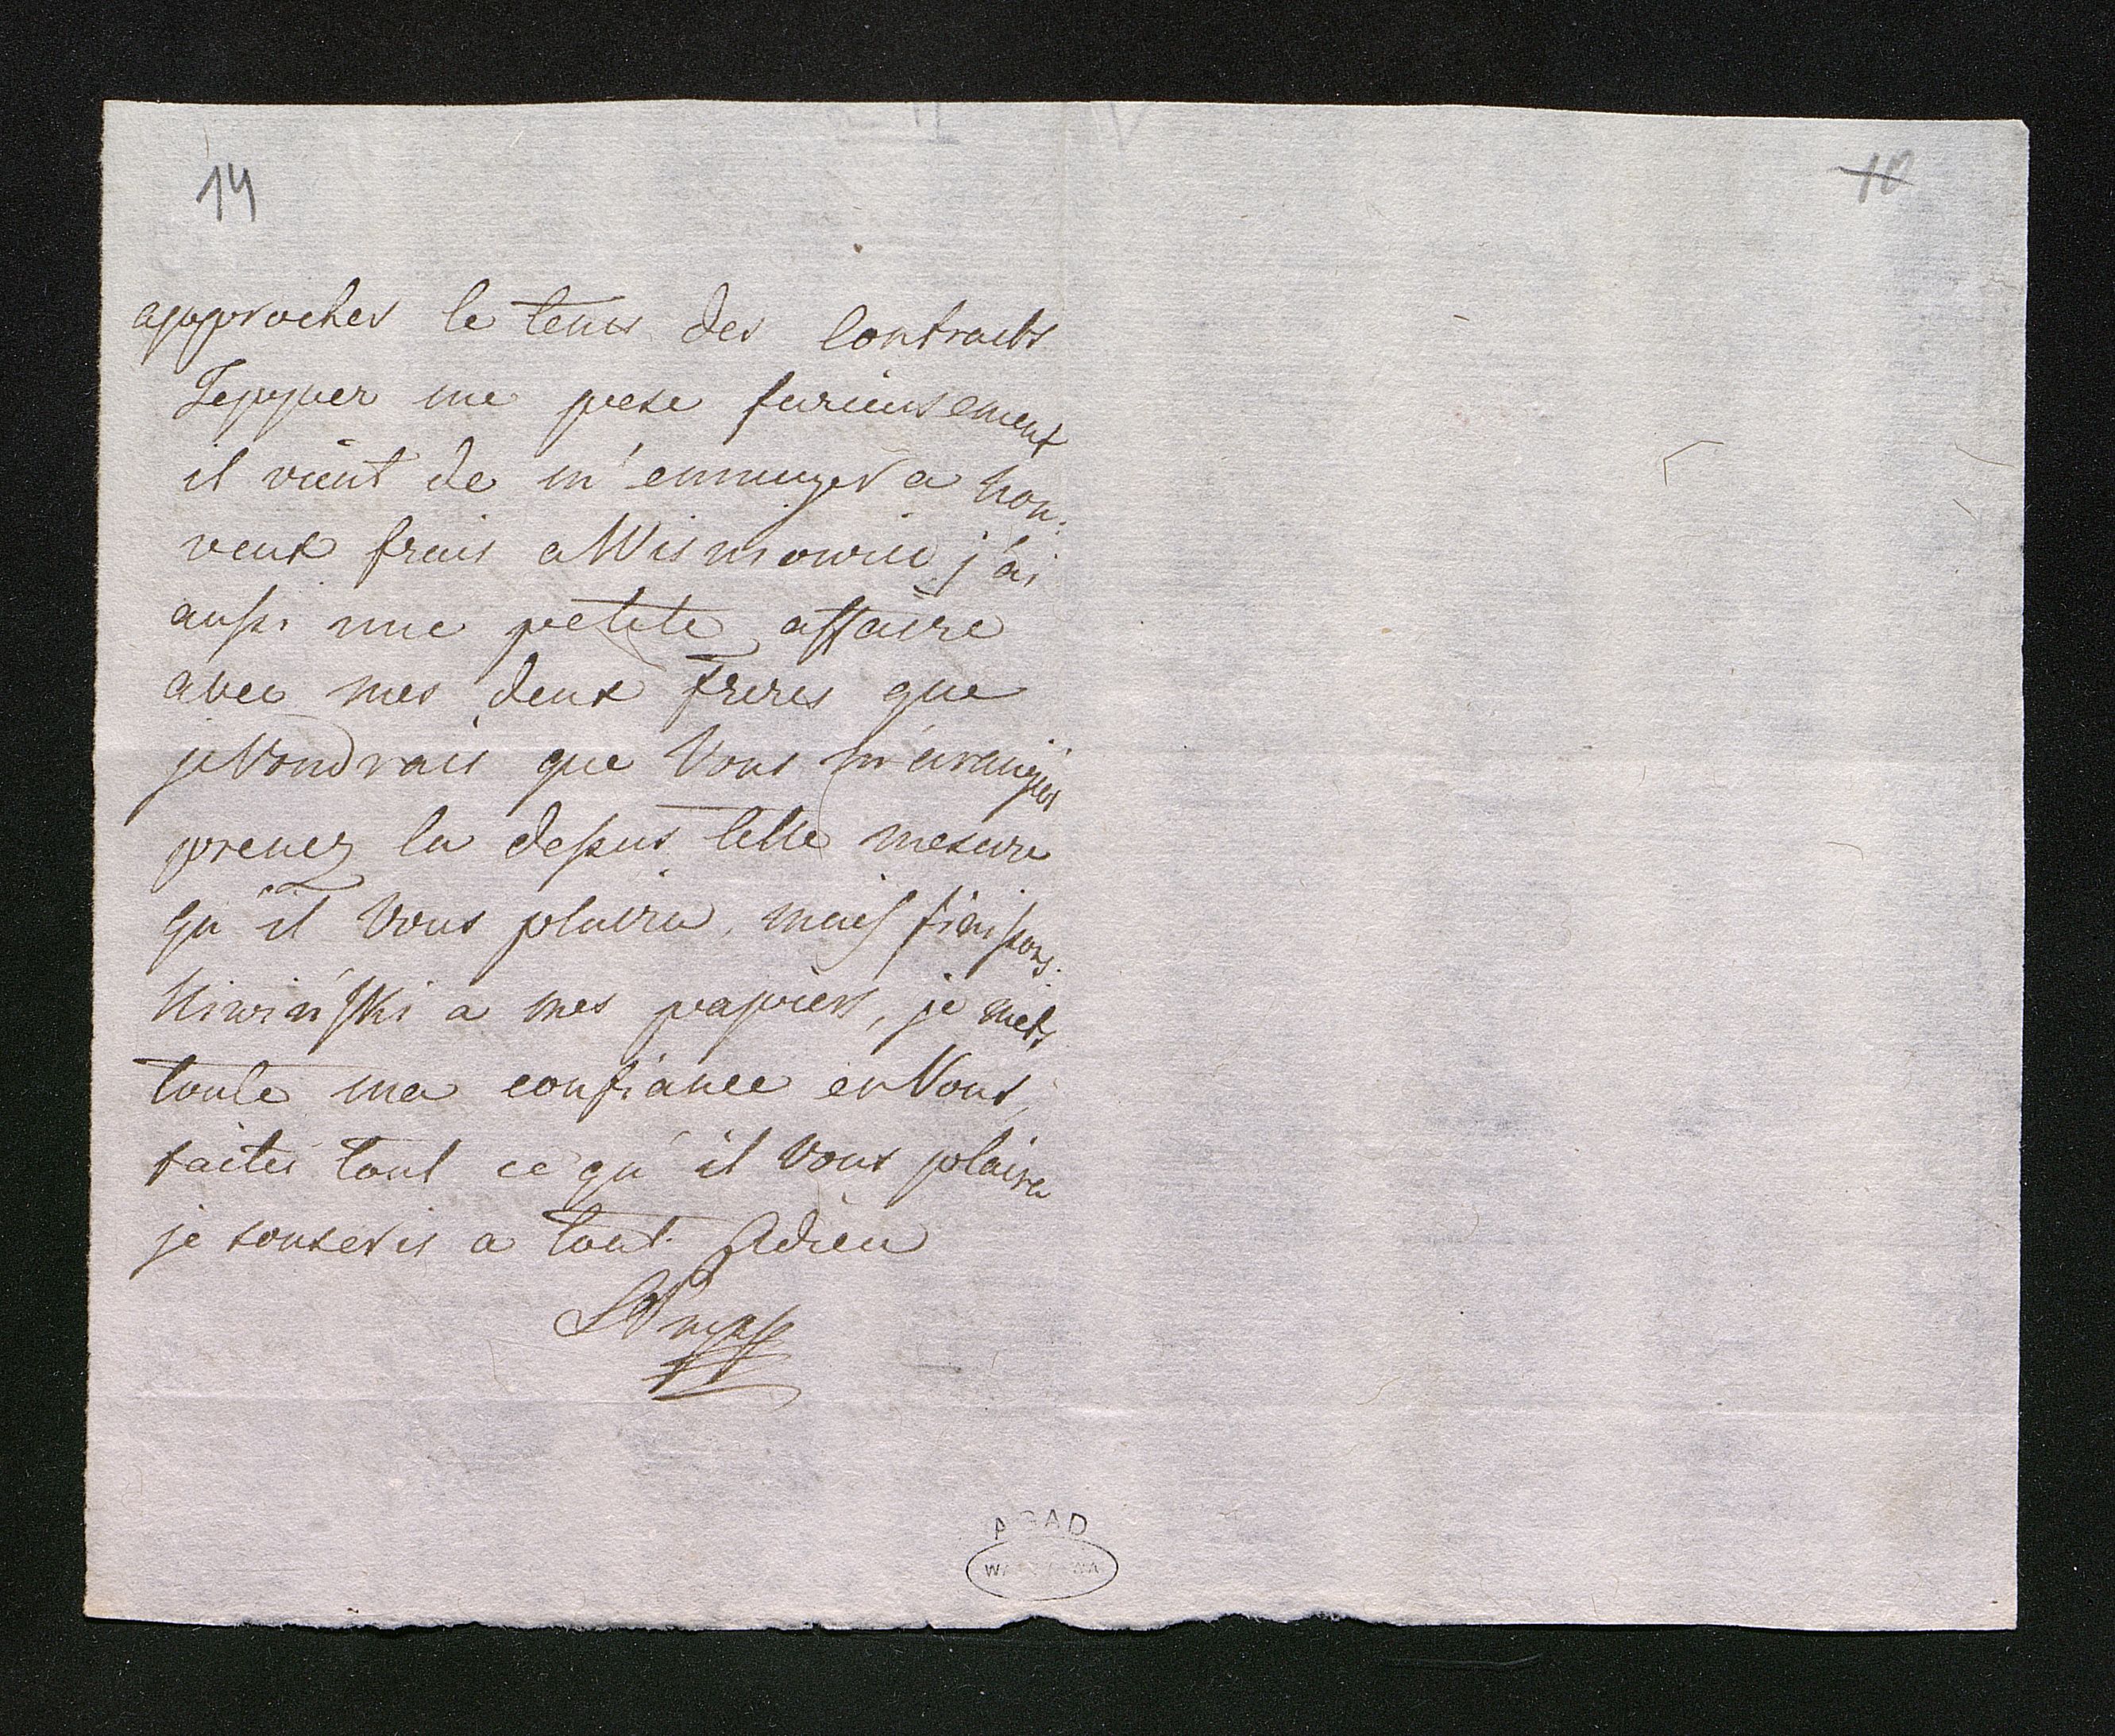 14
10
approcher le tems des Contracts
Tepper me pese furieusement
il vient de m'ennuyer a nou-
veux frais a Wismowiec j'ai
aussi une petite affaire
avec mes deux freres que
je Voudrais que Vous m'arangier
prenez la dessus telle mesure
qu'il Vous plaira, mais finissons.
Niwiński a mes papiers, je mets
toute ma confiance en Vous,
faites tout ce qu'il Vous plaira
je souscris a tout. Adieu
AGAD
WARSZAWA